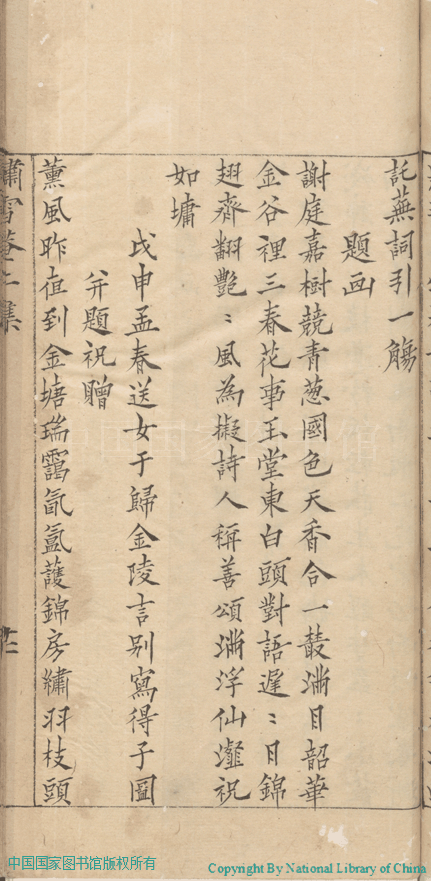 託蕪詞引一觴
題畫
謝庭嘉樹競青葱國色天香合一叢滿目韶華
金谷裡三春花事玉堂東白頭對語遲〻日錦
翅齊翻艷〻風為擬詩人稱善頌滿浮仙瀣祝
如墉
戊申孟春送女于歸金陵言别寫得子圖
并題祝贈
薰風昨夜到金塘瑞靄氤氲護錦房繡羽枝頭
嘯雪菴二集
中国国家图书馆版权所有
Copyright By National Library of China